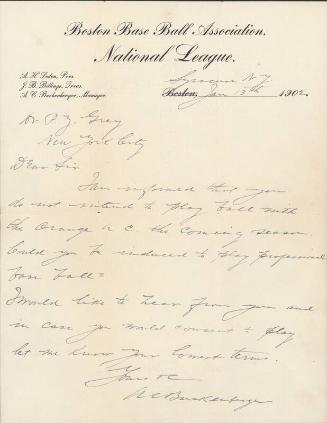 Boston Base Ball Association.
National League.
A. H. Soden, Pres.
J. B. Billings, Treas.
A. C. Buckenberger, Manager.
Syracuse N.Y.
Boston, Jan 13th 1902.
Dr P. Z. Gray
New York City
Dear Sir
I am informed that you
do not intend to play ball with
the Orange A C the coming season.
Could you be induced to play professional
base ball?
I would like to hear from you and
in case you would consent to play
let me know your lowest terms.
Yours &c
A C Buckenberger